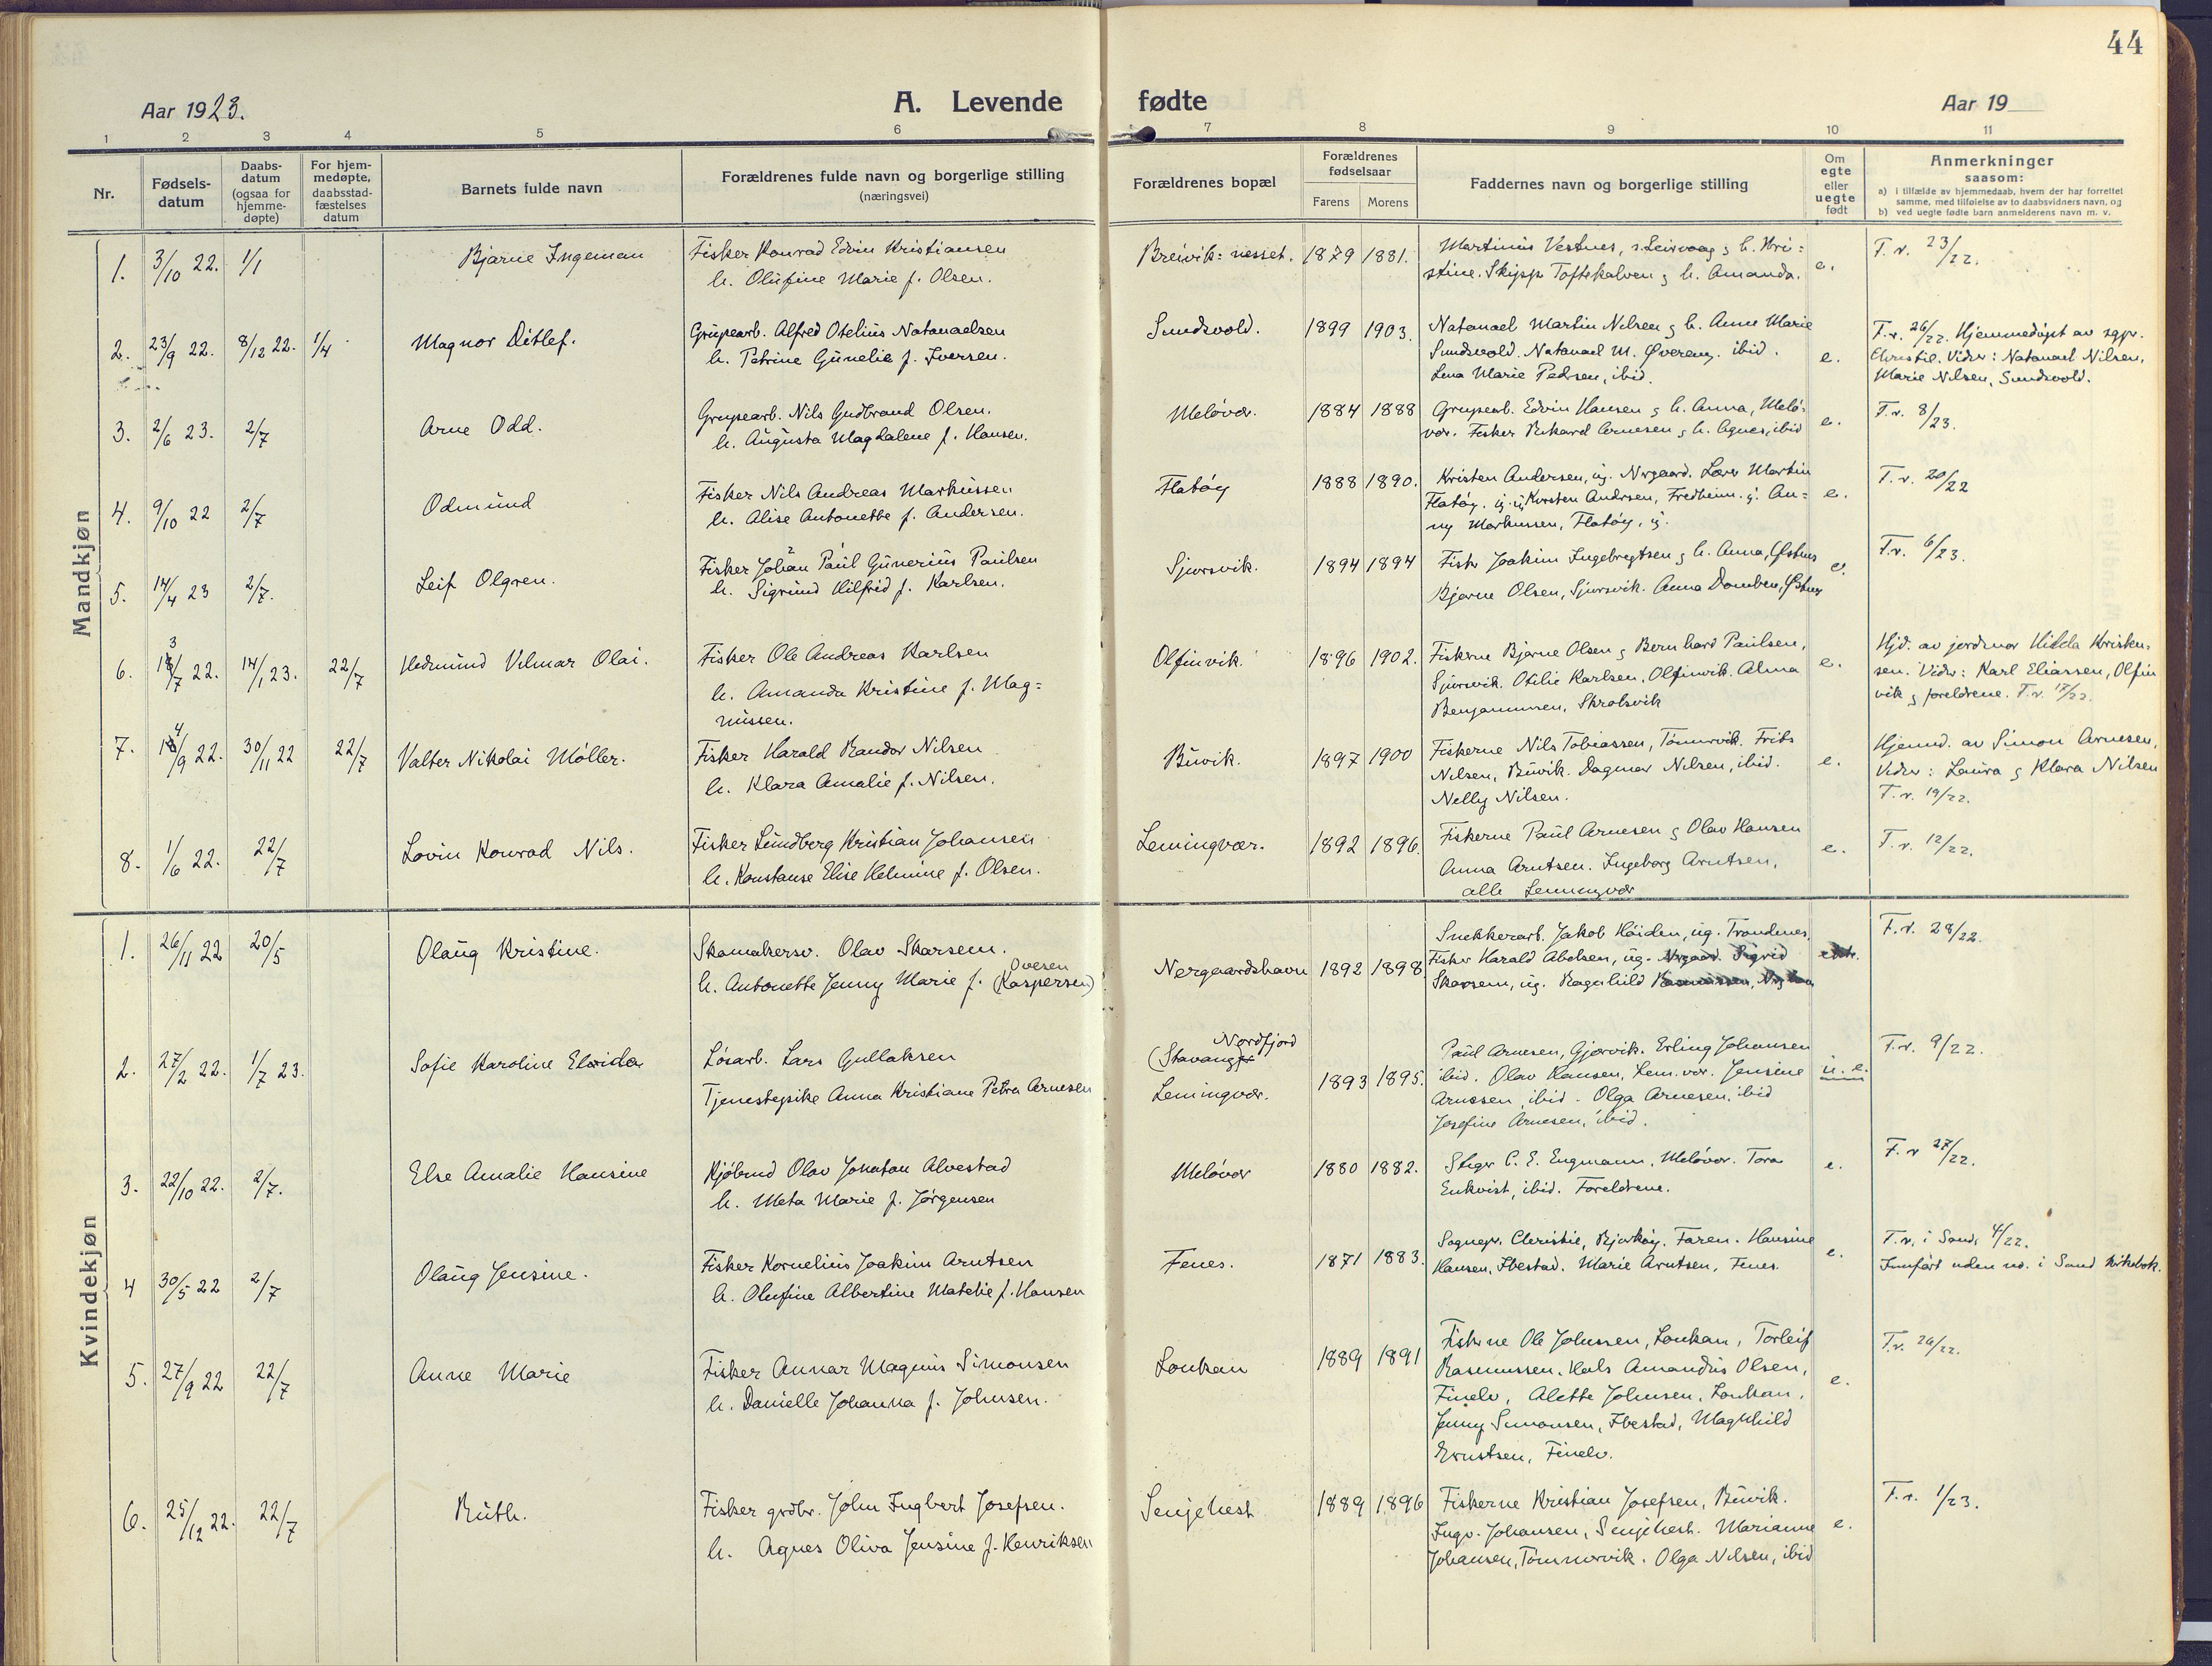 44
Aar 1923.
A. Levende fødte
Aar 19
1 2 3 4 5 6 7 8 9 10 11
Nr.
Fødsels-
datum
Daabs-
datum
(ogsaa for
hjemme-
døpte)
For hjem-
medøpte,
daabsstad-
fæstelses
datum
Barnets fulde navn
Forældrenes fulde navn og borgerlige stilling
(næringsvei)
Forældrenes bopæl
Forældrenes
fødselsaar
Farens Morens
Faddernes navn og borgerlige stilling
Om
egte
eller
uegte
født
Anmerkninger
saasom:
a) i tilfælde av hjemmedaab, hvem der har forrettet
samme, med tilføielse av to daabsvidners navn, og
b) ved uegte fødte barn anmelderens navn m. v.
Mandkjøn
1. 3/10 22. 1/1
Bjarne Ingeman
Fisker Konrad Edvin Kristiansen
h. Olufine Marie f. Olsen.
Breivik=nesset. 1879 1881.
Martinus Vestnes, Leirvaag, h. Kri=
stine. Skipp Toftskalven, h. Amanda.
e.
F.r. 23/22.
2. 23/9 22. 8/12 22. 1/4
Magnor Ditlef.
Grupearb. Alfred Otelius Natanaelsen
h. Petrine Gunelie f. Iversen.
Sundsvold. 1899 1903.
Natanael Martin Nilsen, h. Anne Marie
Sundsvold. Natanael M. ibid.
Lena Marie Pedrsen, ibid.
e.
F.r. 26/22. Hjemmedøpt av sgpr.
Christie. Vidner: Natanael Nilsen,
Marie Nilsen, Sundsvold.
3. 2/6 23. 2/7
Arne Odd.
Grupearb. Nils Gudbrand Olsen.
h. Augusta Magdalene f. Hansen.
Meløvær. 1884 1888
Grupearb. Edvin Hansen, h. Anna, Melø-
vær. Fisker Rikard Arnesen, h. Agnes, ibid
e.
F.r. 8/23.
4. 9/10 22 2/7
Odmund
Fisker Nils Andreas Markussen
h. Alise Antonette f. Andersen.
Flatøy 1888 1890.
Kristen Andersen, ug. Nrgaard. Lærer Martin
Flatøy. Kirsten Andrsen, Fredheim. An=
ny Markussen, Flatøy.
e.
F.r. 20/22
5. 14/4 23 2/7.
Leif Olgren.
Fisker Johan Paul Gunerius Paulsen
h. Sigrund Hilfrid f. Karlsen.
Sjursvik. 1894 1894
Fisk Joakim Ingebregtsen, h. Anna, Østnes
Bjarne Olsen, Sjursvik. Anna Domben, Østnes
e.
F.r. 6/23.
6. 13/7 22. 14/1 23. 22/7
Hedmund Vilmar Olai.
Fisker Ole Andreas Karlsen
h. Amanda Kristine f. Mag=
nussen.
Olfinvik. 1896 1902.
Fiskerne Bjarne Olsen, Bernhard Paulsen,
Sjursvik. Otilie Karlsen, Olfinvik. Alma
Benjaminsen, Skrolsvik
e.
Hjd. av jordmor Hilda Kristen-
sen. Vidn: Karl Eliassen, Olfin
vik, foreldrene. F.r. 17/22.
7. 14/9 22. 30/11 22 22/7
Valter Nikolai Møller.
Fisker Harald Randor Nilsen
h. Klara Amalie f. Nilsen.
Buvik. 1897 1900
Fiskerne Nils Tobiassen, Tømrvik. Frits
Nilsen, Buvik. Dagmar Nilsen, ibid.
Nelly Nilsen.
e.
Hjemmd. av Simon Arnesen,
Vidner: Laura, Klara Nilsen
F.r. 19/22.
8. 1/6 22. 22/7
Lovin Konrad Nils.
Fisker Lundberg Kristian Johansen
h. Konstanse Elise Helmine f. Olsen.
Lemingvær. 1892 1896.
Fiskerne Paul Arnesen, Olav Hansen
Anna Arntsen. Ingeborg Arntsen,
alle Lemingvær
e.
F.r. 12/22.
Kvindekjøn
1. 26/11 22 20/5
Olaug Kristine.
Skomakersv. Olav Skarsem.
Ovesen
h. Antonette Jenny Marie f. (Kaspersen)
Nergaardshavn 1892 1898.
Snekkerarb. Jakob Høiden, ug. Trondenes,
Fisker Harald Abelsen, ug. Nrgaard. Sigrid
Skarsem, ug. Ragnhild
F.r. 28/22.
2. 27/2 22. 1/7 23.
Sofie Karoline Elvida
Løsarb. Lars Gullaksen
Tjenestepike Anna Kristiane Petra Arnesen
Nordfjord
(Stavanger
Lemingvær. 1893 1895.
Paul Arnesen, Gjøvik. Erling Johansen
ibid. Olav Hansen, Lem.vær. Jensine
Arnesen, ibid. Olga Arnesen, ibid
Josefine Arnesen, ibid.
u.e.
F.r. 9/22.
3. 22/10 22. 2/7.
Else Amalie Hansine
Kjøbmd Olav Jonatan Alvestad
h. Meta Marie f. Jørgensen
Meløvær 1880 1882.
Stiger C. E. Engmann, Meløvær. Tora
Enkvist, ibid. Foreldrene.
e.
F.r 27/22.
4 30/5 22 2/7
Olaug Jensine.
Fisker Kornelius Joakim Arntsen
h. Olufine Albertine Matelie f. Hansen
Fenes. 1871 1883.
Sognepr. Christie, Bjarkøy. Faren. Hansine
Hansen, Ibestad. Marie Arntsen, Fenes.
e.
F.r. i Sand, 4/22.
Innført uden no. i Sand kirkebok.
5. 27/9 22 22/7
Anne Marie
Fisker Annar Magnus Simonsen
h. Danielle Johanna f. Johnsen.
Lonkan 1889 1891
Fiskerne Ole Johnsen, Lonkan, Torleif
Rasmussen. Hals Amandus Olsen,
Finelv, Alette Johnsen, Lonkan,
Jenny Simonsen, Ibestad, Maghild
Ernstsen, Finelv.
e.
F.r. 26/22.
6. 25/12 22. 22/7
Ruth.
Fisker grdbr. John Ingbert Josefsen.
h. Agnes Oliva Jensine f. Henriksen
Senjehest 1889 1896
Fiskerne Kristian Josefsen, Buvik.
Ingv. Johansen, Senjehest. Marianne
Johansen, Tømmervik. Olga Nilsen, ibid
e.
F.r. 1/23.